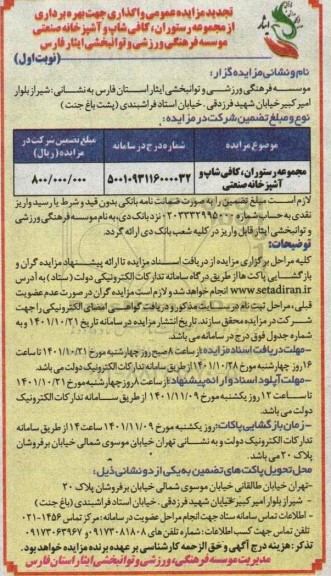 تجدید مزایده عمومی واگذاری جهت بهره برداری
از مجموعه رستوران، کافی شاپ و آشپزخانه صنعتی
موسسه فرهنگی ورزشی و توانبخشی ایثار فارس
(نوبت اول)
ایثار
نام و نشانی مزایده گزار:
موسسه فرهنگی ورزشی و توانبخشی ایثار استان فارس به نشانی: شیراز بلوار
امیرکبیر خیابان شهید فرزدقی، خیابان استاد فراشبندی (پشت باغ جنت)
نوع و مبلغ تضمین شرکت در مزایده:
موضوع مزایده
شماره درج در سامانه
مبلغ تضمین شرکت در مزایده (ریال)
مجموعه رستوران، کافی شاپ و آشپزخانه صنعتی
5001093116000032
800/000/000
لازم است مبلغ تضمین را به صورت ضمانت نامه بانکی بدون قید و شرط یا رسید واریز
نقدی به حساب شماره نزد بانک دی به نام موسسه فرهنگی ورزشی
و توانبخشی ایثار قابل واریز در کلیه شعب بانک دی ارائه گردد.
توضیحات:
کلیه مراحل برگزاری مزایده از دریافت اسناد مزایده تا ارائه پیشنهاد مزایده گران و
بازگشایی پاکت ها از طریق درگاه سامانه تدارکات الکترونیکی دولت (ستاد) به آدرس
www.setadiran.ir انجام خواهد شد و لازم است مزایده گران در صورت عدم عضویت
قبلی، مراحل ثبت نام در سایت مذکور و دریافت گواهی امضای الکترونیکی را جهت
شرکت در مزایده محقق سازند. تاریخ انتشار مزایده در سامانه تاریخ ۱۴۰۱/۱۰/۲۱ به
شماره جدول فوق درج در سامانه می باشد.
-مهلت دریافت اسناد مزایده: از ساعت ۸ صبح روز چهارشنبه مورخ ۱۴۰۱/۱۰/۲۱ تا ساعت
۱۶ روز چهارشنبه مورخ ۱۴۰۱/۱۰/۲۸ از طریق سامانه تدارکات الکترونیک دولت می باشد.
-مهلت آپلود اسناد و ارائه پیشنهاد: از ساعت ۸ روز چهارشنبه مورخ ۱۴۰۱/۱۰/۲۱
تا ساعت ۱۲ روز یکشنبه مورخ ۱۴۰۱/۱۱/۰۹ از طریق سامانه تدارکات الکترونیک دولت
می باشد.
-زمان بازگشایی پاکات: روز یکشنبه مورخ ۱۴۰۱/۱۱/۰۹ ساعت ۱۴ از طریق سامانه
تدارکات الکترونیک دولت و به نشانی تهران خیابان موسوی شمالی خیابان برفروشان
پلاک ۲۰ می باشد.
محل تحویل پاکت های تضمین به یکی از دو نشانی ذیل:
-تهران خیابان طالقانی خیابان موسوی شمالی خیابان برفروشان پلاک ۲۰
- شیراز بلوار امیرکبیر خیابان شهید فرزدقی، خیابان استاد فراشبندی (باغ جنت)
- اطلاعات تماس سامانه ستاد جهت انجام مراحل عضویت در سامانه: مرکز تماس ۱۴۵۶-۰۲۱
تلفن تماس جهت کسب اطلاعات: شماره تلفن های ۰۹۱۷۳۰۸۱۸۰۸ و ۰۹۱۷۳۰۶۳۹۶۷
تذکر: هزینه درج آگهی و حق الزحمه کارشناسی بر عهده برنده مزایده خواهد بود.
مدیریت موسسه فرهنگی، ورزشی و توانبخشی ایثار استان فارس